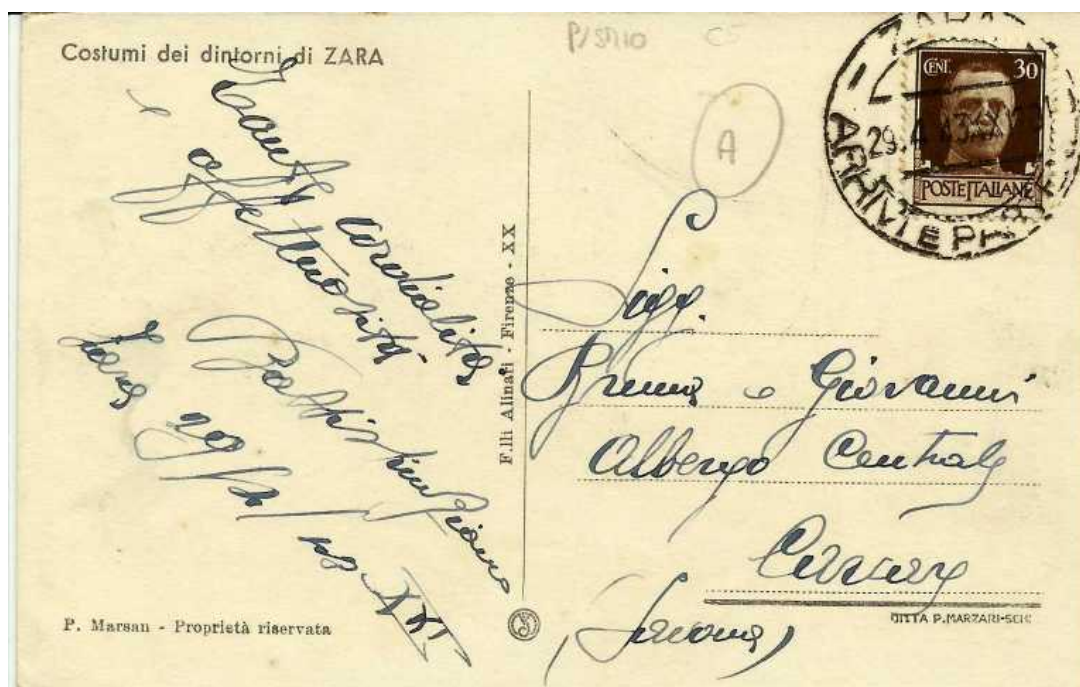 Costumi dei dintorni di ZARA
P/5710 C5
A
ZARA
29.4.43.XXI
ARRIVI E P
CENT. 30
POSTE ITALIANE
Tante cordialità
affettuosità
Zara 29/4/43 XXI
F.lli Alinari - Firenze - XX
Sigg.
Bruna e Giovanni
Albergo Centrale
(Savona)
P. Marsan - Proprietà riservata
DITTA P. MARZARI-SCHIO